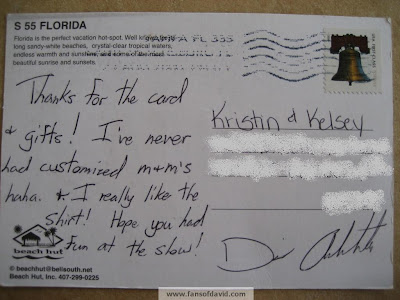 S 55 FLORIDA
Florida is the perfect vacation hot-spot. Well
long sandy-white beaches, crystal-clear tropical waters,
endless warmth and
beautiful sunrise and sunsets.
FL 335
Thanks for the card
& gifts! I've never
had customized m&m's
haha. & I really like the
shirt! Hope you had
fun at the show!
Kristin & Kelsey
beach hut
© beachhut@bellsouth.net
Beach Hut, Inc. 407-299-0225
www.fansofdavid.com